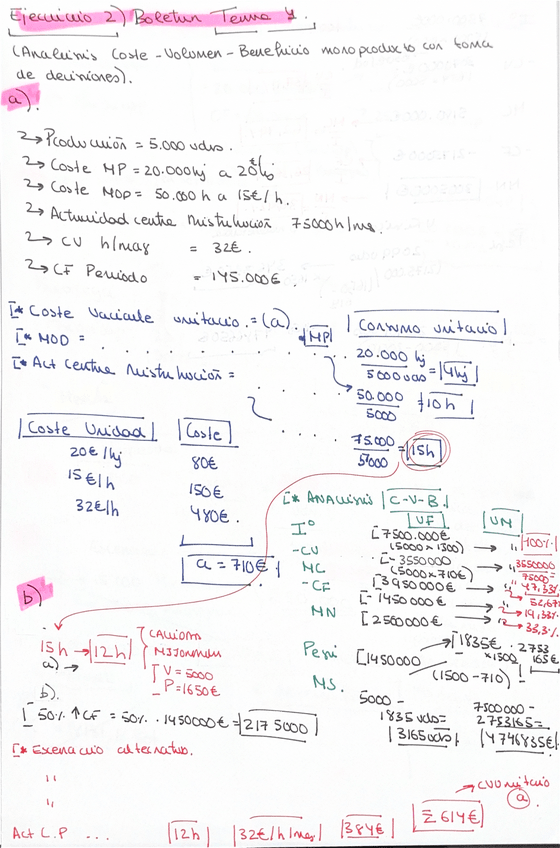 Ejercicio 2) Boletín Tema 4.
(Análisis Coste - Volumen - Beneficio monoproducto con toma
de decisiones).
a).
→ Producción = 5.000 uds.
→ Coste MP = 20.000 kj a 20€/kj
→ Coste MOD = 50.000 h a 15€/h.
→ Actividad centro Distribución 75000 h/
→ CV h/maq = 32€.
→ CF Periodo = 145.000€.
[* Coste Variable unitario = (a). MP | Consumo unitario |
[* MOD = . . . . . . . . 20.000 kj / 5000 uds = |4kj|
[* Act Centro Distribución = . . . 50.000 / 5000 = |10h|
. . . . 75.000 / 5000 = |15h|
| Coste Unidad | | Coste |
20€/kj 80€
15€/h 150€
32€/h 480€
| a = 710€ |
[* ANALISIS | C-V-B. |
|UF| |UM|
Iº [7500.000€ (5000 x 1500) → " |100%|
-CV [-3550000 (5000 x 710€) → " 3550000 / 75000 =
MC [3950000€ → " 47,33%
-CF [-1450000€ → " 52,67%
MN [2500000€ → " 19,33%
" 33,3%
Peqi [1450000 / (1500-710) |1835€ · x1500 2753165€|
MS. 5000 - 1835 uds = |3165 uds| 7500000 - 2753165 = |4746835€|
b)
15h → |12h|
a) →
V = 5000
P = 1650€
b).
[50% ↑ CF = 50% · 1450000€ = |2175000|
[* Escenario alternativo.
"
"
Act C.P ... |12h| |32€/h/maq| |384€| |Σ 614€| → CV Unitario (a)